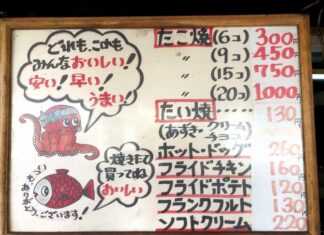 どれも、これも
みんなおいしい!
安い!早い!
うまい!
焼きたて
買ってね
おいしい
もういっちょう
ありがとうございます!
たこ焼(6コ) 300円
〃 (9コ) 450
〃 (15コ) 750
〃 (20コ) 1000
たい焼 130
(あずき・クリーム
チョコ)
ホット・ドッグ 260
フライドチキン 160
フライドポテト 120
フランクフルト 130
ソフトクリーム 220